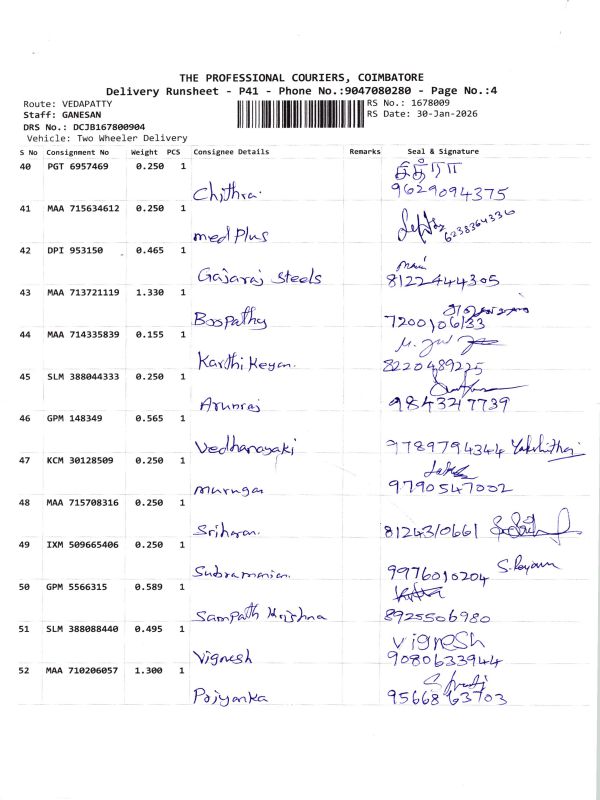 THE PROFESSIONAL COURIERS, COIMBATORE
Delivery Runsheet - P41 - Phone No.:9047080280 - Page No.:4
Route: VEDAPATTY
RS No.: 1678009
Staff: GANESAN
RS Date: 30-Jan-2026
DRS No.: DCJB167800904
Vehicle: Two Wheeler Delivery
S No Consignment No Weight PCS Consignee Details Remarks Seal & Signature
40 PGT 6957469 0.250 1 சித்ரா
Chithra. 9629094375
41 MAA 715634612 0.250 1
med plus 6238364336
42 DPI 953150 0.465 1 mani
Gajaraj Steels 8122444305
43 MAA 713721119 1.330 1
Boopathy 7200106133
44 MAA 714335839 0.155 1
Karthikeyan. 8220489225
45 SLM 388044333 0.250 1
Arunraj 9843247739
46 GPM 148349 0.565 1
Vedhanayaki 9789794344
47 KCM 30128509 0.250 1
murugan 9790547002
48 MAA 715708316 0.250 1
Sriharan. 8124310661
49 IXM 509665406 0.250 1
Subramanian. 9976010204
50 GPM 5566315 0.589 1
Sampath Krishna 8925506980
51 SLM 388088440 0.495 1 Vignesh
Vignesh 9080633944
52 MAA 710206057 1.300 1
Poiyanka 9566863703